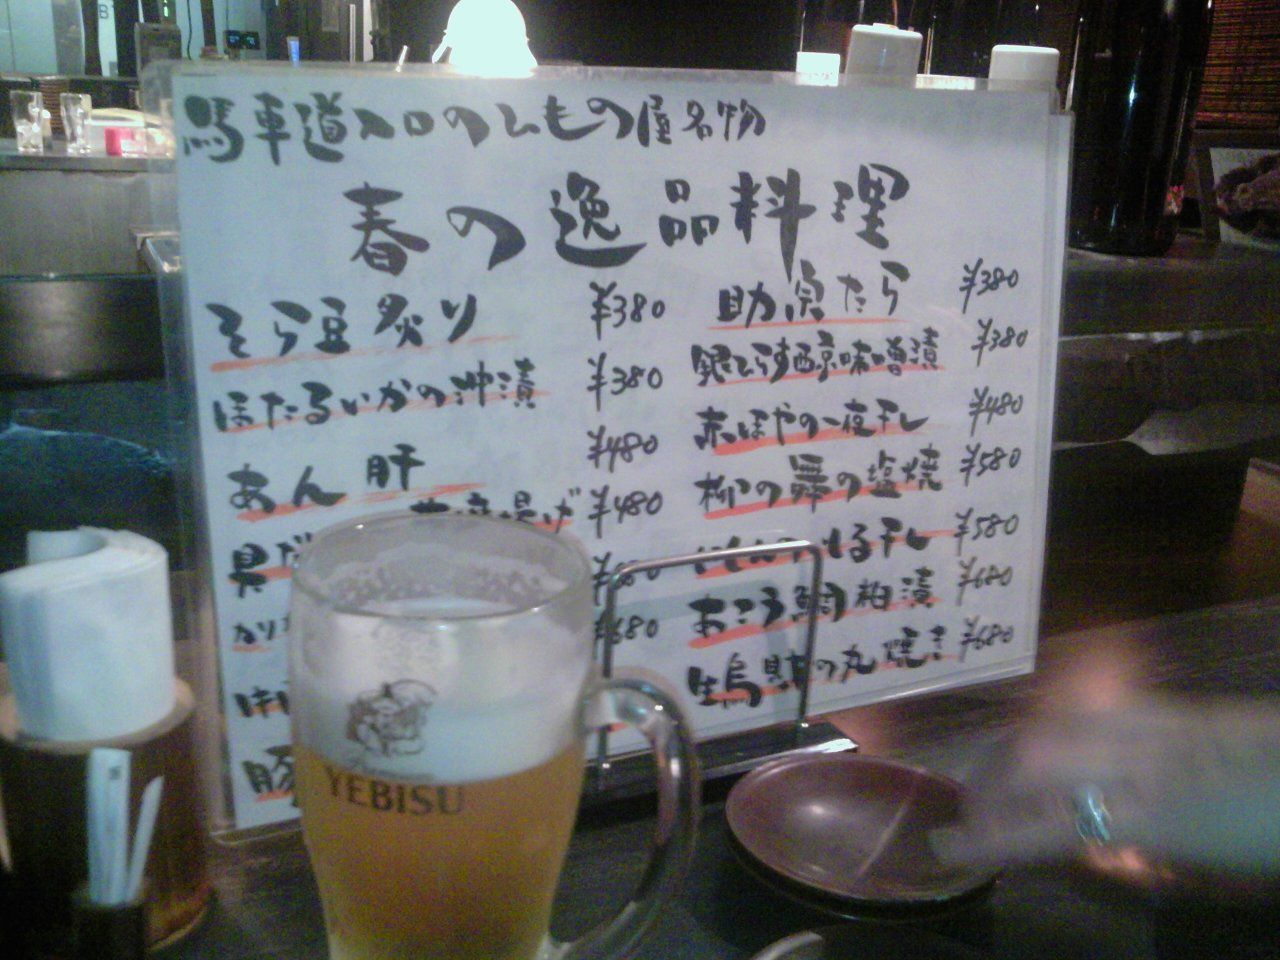 馬車道入口のひもの屋名物
春の逸品料理
そら豆炙り ¥380
ほたるいかの沖漬 ¥380
あん肝 ¥480
揚げ ¥480
¥680
助宗たら ¥380
銀ひらす西京味噌漬 ¥380
赤ほやの一夜干し ¥480
柳の舞の塩焼 ¥580
干し ¥580
あこう鯛粕漬 ¥680
生烏賊の丸焼き ¥680
豚
YEBISU